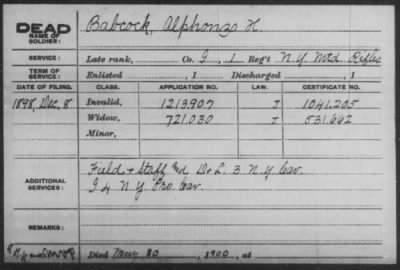 DEAD
NAME OF SOLDIER:
Babcock, Alphonzo H.
SERVICE:
Late rank, Co. I, 1 Reg't N.Y. Mtd. Rifles
TERM OF SERVICE:
Enlisted , 1 Discharged , 1
DATE OF FILING. CLASS. APPLICATION NO. LAW. CERTIFICATE NO.
1898, Dec, 8 Invalid, 1213.907 J 1041.205
Widow, 721.030 J 531.662
Minor,
ADDITIONAL SERVICES:
Field + Staff and D + L. 3 N.Y. Cav.
I 4 N.Y. Pro. Cav.
REMARKS:
Died 30, 1900, at